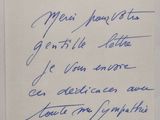 Merci pour votre
gentille lettre
je vous envoie
ces dédicaces avec
toute ma sympathie